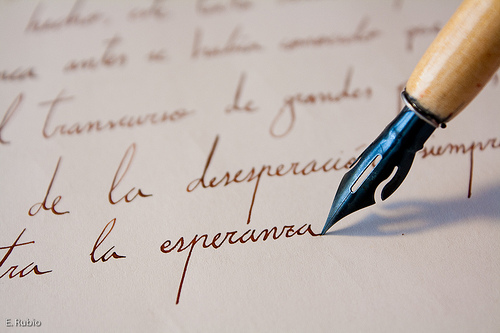 hecho, este
antes se había conocido
transcurso de grandes
de la desesperació siempr
la esperanza
E. Rubio